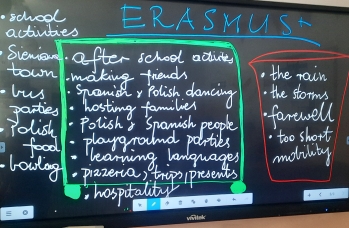 ERASMUS+
• school
activities
• Siemiano
town
• bus
parties
• Polish
food
• bowling
• after school activites
• making friends
• Spanish & Polish dancing
• hosting families
• Polish & Spanish people
• playground parties
• learning languages
• pizzeria, trips, presents
• hospitality
• the rain
• the storms
• farewell
• too short
mobility
vivitek